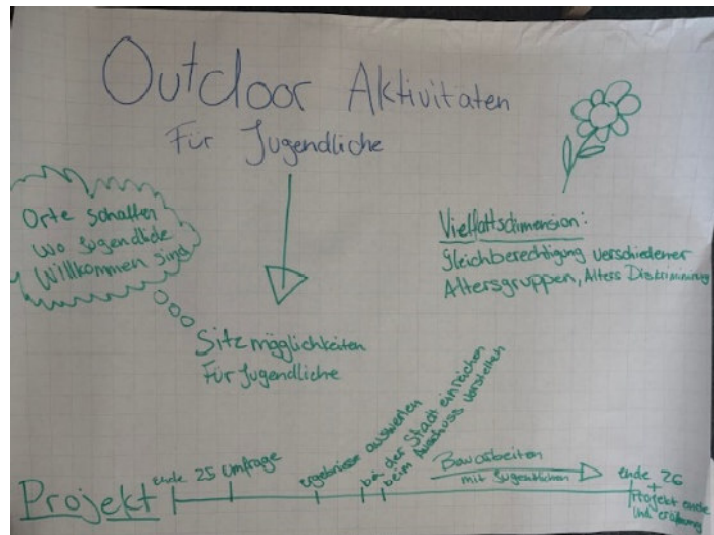 Outdoor Aktivitäten
Für Jugendliche
Orte schaffen
wo Jugendliche
Willkommen sind
Vielfaltsdimension:
Gleichberechtigung verschiedener
Altersgruppen, Alters Diskriminierung
Sitzmöglichkeiten
Für Jugendliche
Projekt
ende 25
Umfrage
ergebnisse auswerten
bei der Stadt einreichen
beim Ausschuss vorstellen
Bauarbeiten
mit Jugendlichen
ende 26
+
Projekt ende
und eröffnung